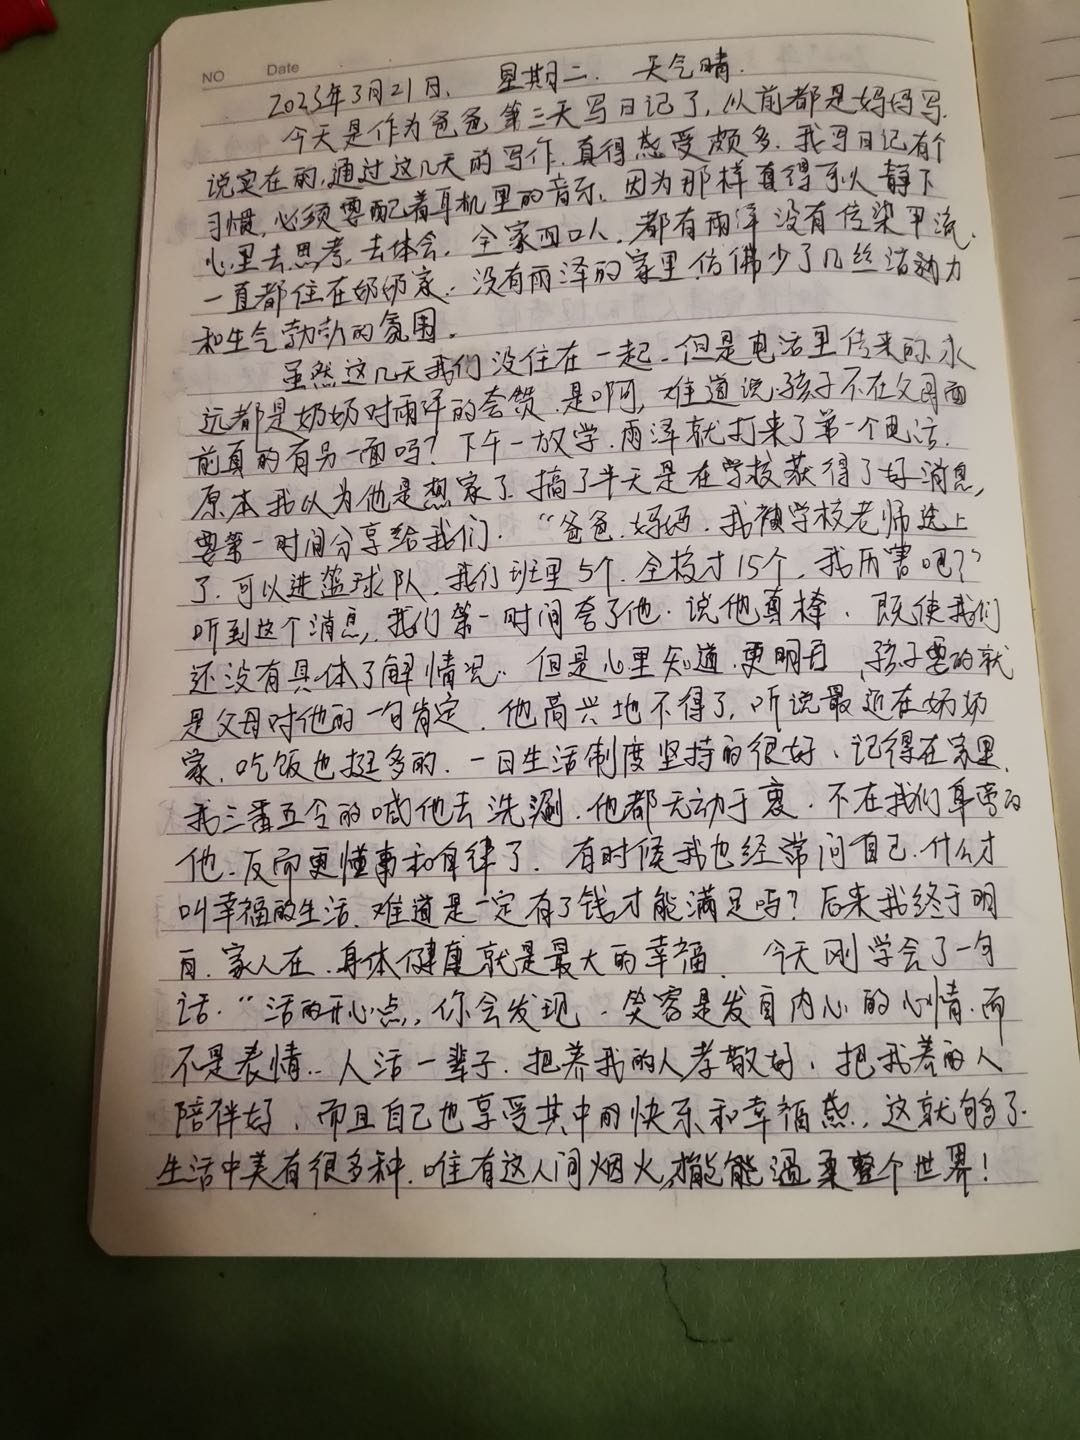 NO Date
2023年3月21日、 星期二. 天气晴.
今天是作为爸爸第三天写日记了,从前都是妈妈写.
说实在的,通过这几天的写作.真得感受颇多.我写日记有个
习惯,必须要配着耳机里的音乐,因为那样真得可以静下
心里去思考,去体会.全家四口人.都有雨泽没有传染甲流.
一直都住在奶奶家.没有雨泽的家里仿佛少了几丝活动力
和生气勃勃的氛围。
虽然这几天我们没住在一起.但是电话里传来的永
远都是奶奶对雨泽的夸赞.是啊,难道说孩子不在父母面
前真的有另一面吗?下午一放学.雨泽就打来了第一个电话.
原本我以为他是想家了.搞了半天是在学校获得了好消息,
要第一时间分享给我们.“爸爸.妈妈.我被学校老师选上
了.可以进篮球队.我们班里5个.全校才15个.我历害吧?”
听到这个消息,我们第一时间夸了他.说他真棒.既使我们
还没有具体了解情况.但是心里知道.更明白,孩子要的就
是父母对他的一句肯定.他高兴地不得了.听说最近在奶奶
家.吃饭也挺多的.一日生活制度坚持的很好.记得在家里.
我三番五令的喊他去洗涮.他都无动于衷.不在我们身旁的
他.反而更懂事和自律了.有时候我也经常问自己.什么才
叫幸福的生活.难道是一定有了钱才能满足吗?后来我终于明
白.家人在.身体健康就是最大的幸福. 今天刚学会了一句
话.“活的开心点,你会发现.笑容是发自内心的心情.而
不是表情..人活一辈子.把养我的人孝敬好,把我养的人
陪伴好,而且自己也享受其中的快乐和幸福感..这就够了.
生活中美有很多种.唯有这人间烟火,才能温柔整个世界!